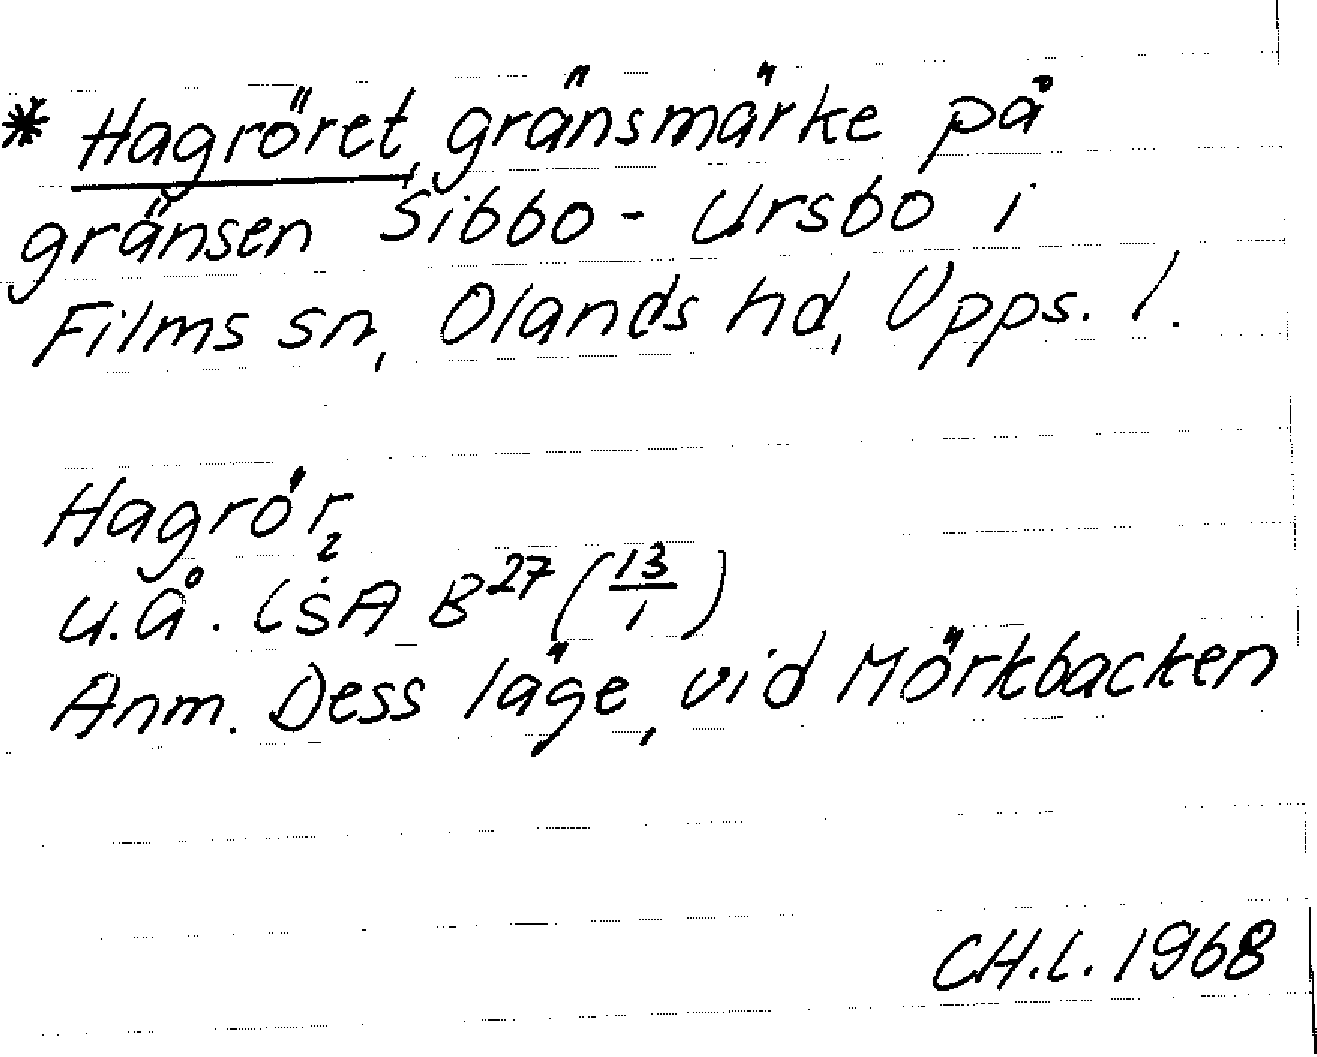 * Hagröret, gränsmärke på
gränsen Sibbo - Ursbo i
Films sn, Olands hd, Upps. l.
Hagrör,
u.å. LSA B 27 (13/1)
Anm. Dess läge, vid Mörkbacken
CH.L. 1968